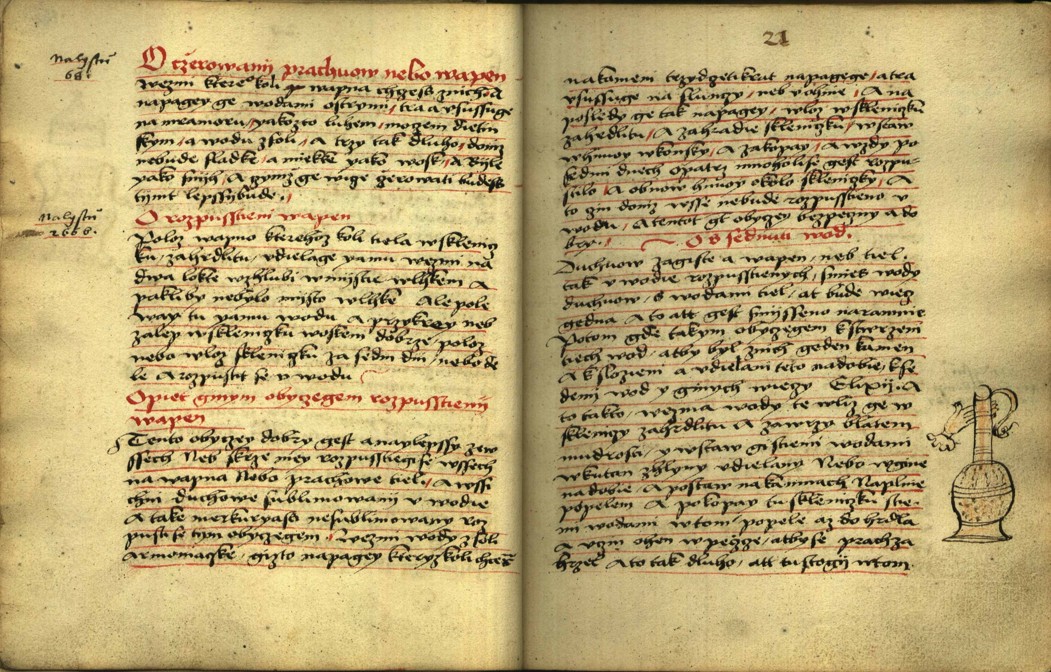 Na lystu
68.
O czerowanii prachuow nebo wapen
wezmi ktere koli wapna chczess z nich A
napagey ge wodami ostrymi, tra a ussussuge
na mramoru, yakozto luhem, moczem dietin
skym, a wodu z soli, A trzy tak dluho, doniz
nebude sladke, a miekke yako wosk, A byle
yako snih, A czymz ge wicze czerowati budess
tymt lepssy bude.
Na lystu
266.
O rozpusstieni wapen
Poloz wapno kterehoz koli tiela w sklenicz
ku, zahrdlitu, vdielage yamu wezmi na
dwa lokte wzhlubi w mistie wlhkem A
pakli by nebylo misto wlhke Ale pole
way tu yamu wodu A przykrey neb
zalep w skleniczku woskem dobrze poloz
nebo wloz skleniczku za sedm dni, nebo de
le A rozpusti se v wodu
Opiet ginym obyczegem rozpusstienii
wapen
Tento obyczey dobry gest a naylepssy ze w
ssech Neb skrze ney rozpusstiegi se wssech
na wapna Nebo prachowe tiel, A wssi
chni duchowe sublimowani v wodu
A take merkuryass nesublimowany roz
pusti se tym obyczegem, Wezmi wody z soli
armoniacske, gizto napagey kteryzkoli chcess
21
na kameni trzydczetikrat napagege, a tra
ussussuge na slunczy, neb v ohnie, A na
posledy ge tak napagey, wloz w skleniczku
zahrdlitu, A zahradie skleniczku, wstaw
w hnuoy w konsky, A zakopay, A wzdy po
sedmi dnech opatrz mnoholi se gest rozpu-
stilo, A obnow hnuoy okolo skleniczky, A
to czin doniz wsse nebude rozpusstieno v
wodu, A tentot gt obyczey bezpeczny a do
bry. O sedmiu wod.
Duchuow zagiste a wapen, neb tiel.
tak v wodie rozpusstienych, smies wody
duchuow, s wodami tiel, at bude wiecz
gedna A to att gest smisseno naramnie
Potom gde takym obyczegem k stwrzeni
tiech wod, at by byl z nich geden kamen
A k slozieni a vdielani teto nadobie, k se
dmi wod y ginych wieczy Elixir. A
to takto, wezma wody te wliz ge w
skleniczy zahrdlitu A zawrzy blatem
mudrosti, y wstaw gi stiemi wodami
w kutan z hlyny vdielany Nebo w gine
nadobie, A postaw na kamnach Naplnie
popelem A pokopay tu skleniczku s tie
mi wodami w tom popele az do hrdla
A vczin ohen w peczcze, at by se prach za
hrzel A to tak dluho, att tu stogij w tom.